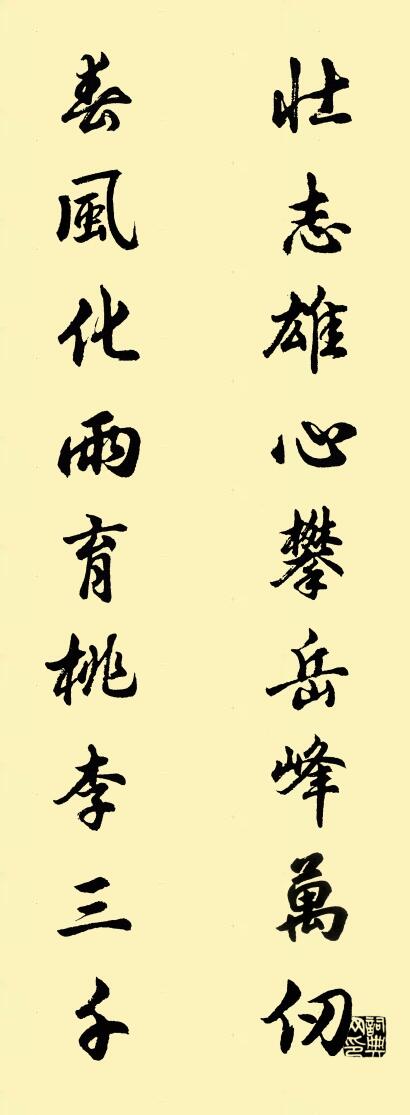 壯志雄心攀岳峰萬仞
春風化雨育桃李三千
詞典網印